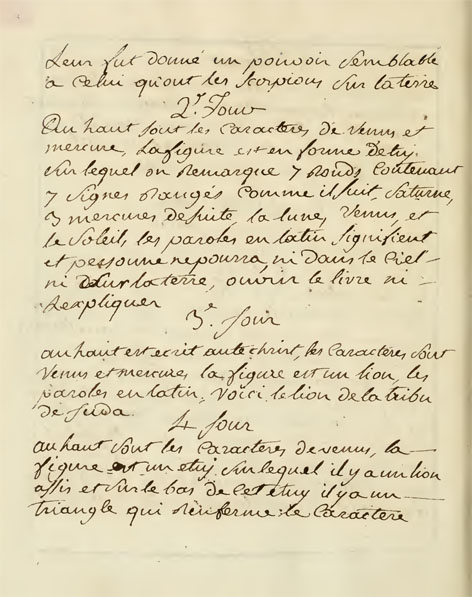 Leur fut donné un pouvoir semblable
a celui qu'ont les scorpions sur la terre
2.e Jour
Au haut sont les caracteres de venus et
mercure, La figure est en forme detuy
sur lequel on remarque 7 ronds contenant
7 signes rangés comme il suit, Saturne,
3 mercures de suite, la lune, Venus, et
le Soleil, les paroles en latin signifient
et personne ne pourra, ni dans le Ciel
ni sur la terre, ouvrir le livre ni
l'expliquer
3.e Jour
au haut est ecrit antechrist, les caractères sont
Venus et mercure la figure est un lion, les
paroles en latin, Voici le lion de la tribu
de Juda.
4 Jour
au haut sont les caracteres de venus, la
figure est un etuy sur lequel il y a un lion
assis et sur le bas de cet etuy il y a un
triangle qui renferme le caractere